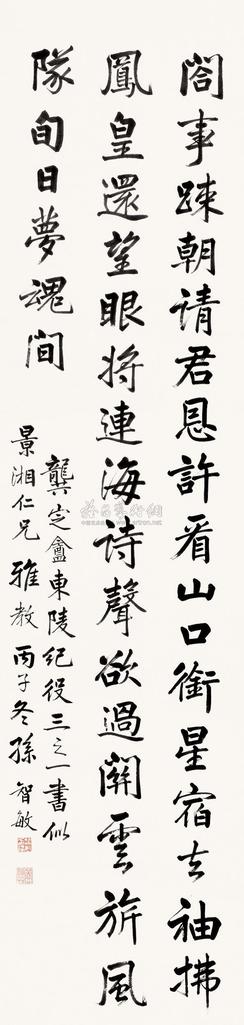 閤事疎朝請君恩許看山口銜星宿去袖拂
鳳皇還望眼将連海詩聲欲過關雲旂風
隊旬日夢魂間
龔定盦東陵紀役三之一書似
景湘仁兄雅教丙子冬孫智敏